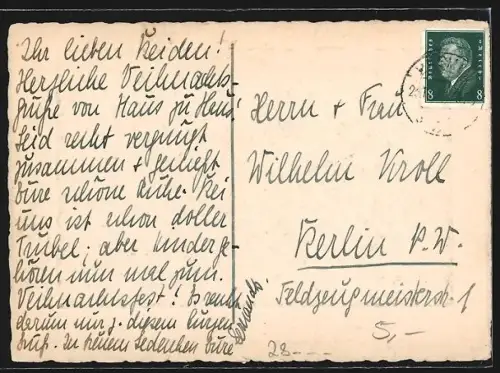 Ihr lieben Beiden!
Herzliche Weihnachts-
grüße von Haus zu Haus!
Seid recht vergnügt
zusammen + genießt
Eure schöne Ruhe. Bei
uns ist schon doller
Trubel, aber Kinder ge-
hören nun mal zum
Weihnachtsfest! Es reicht
darum nur z. diesem kurzen
Gruß. In treuem Gedenken Eure
Herrn + Frau
Wilhelm Kroll
Berlin S.W.
Feldzeugmeisterstr. 1
5,-
28---
8 8